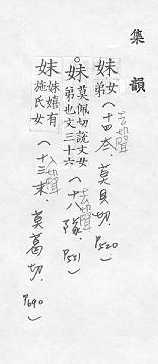 集韻
妹 女弟(十四太,莫貝切,P520)
。妹 莫佩切說文女弟也文三十六(十八隊,P531)
妺 妺嬉有施氏女(十三末,莫葛切,P690)